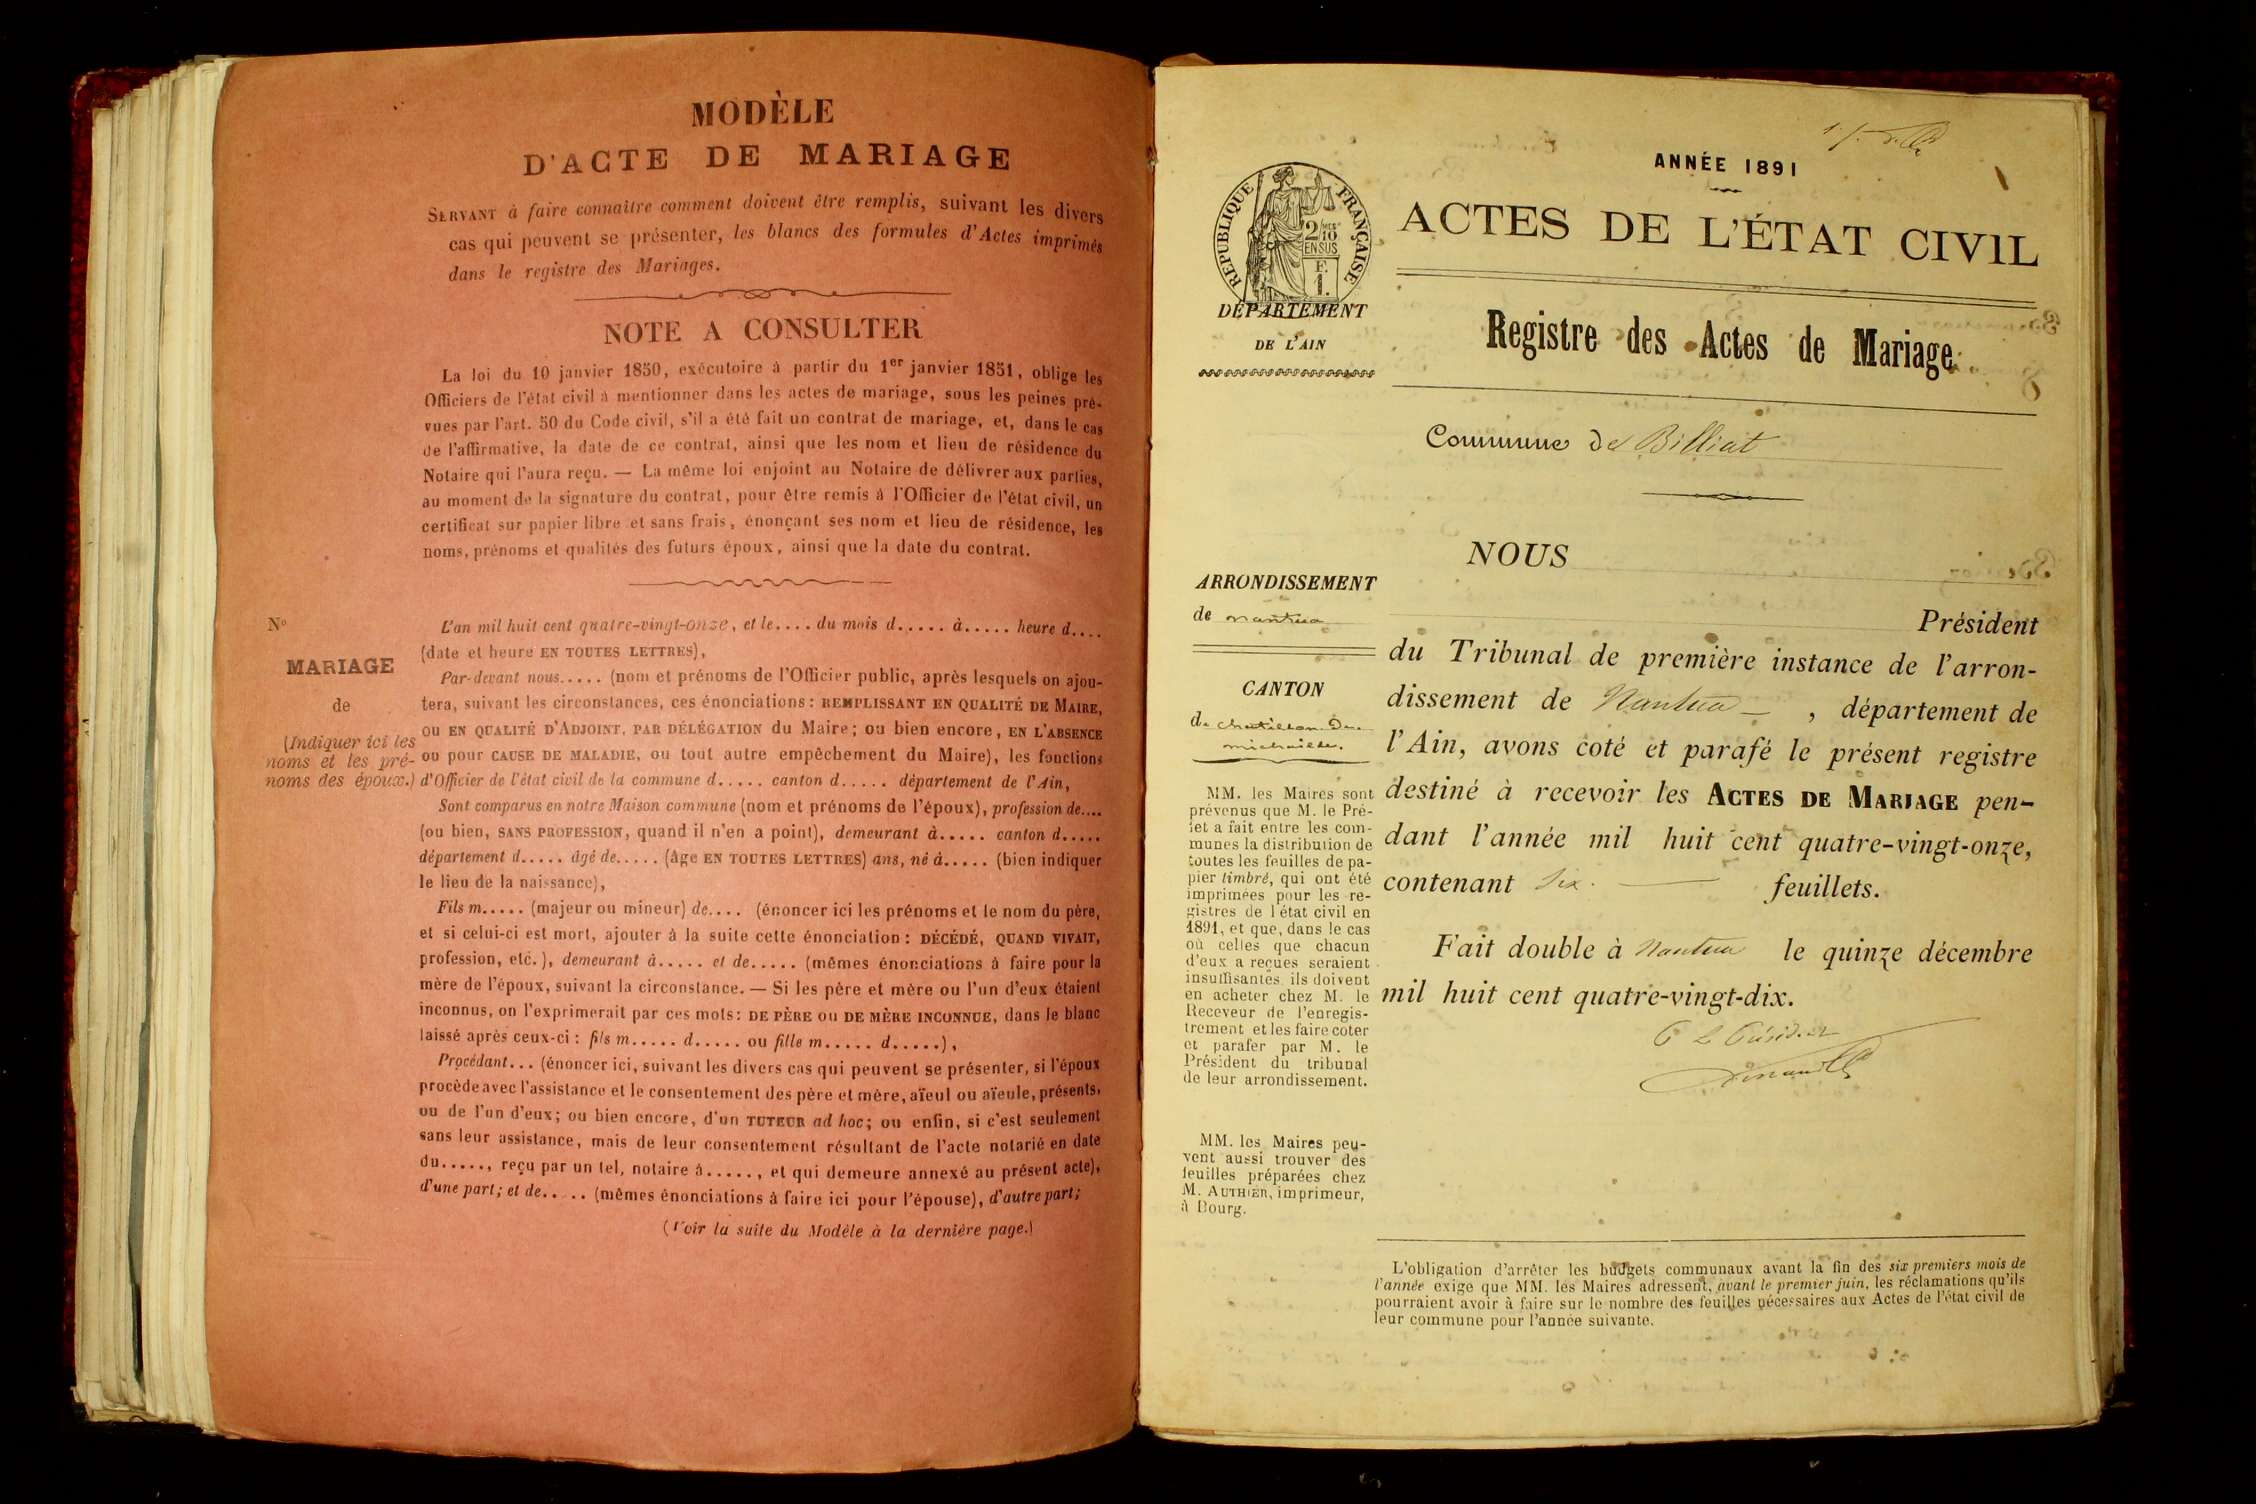 MODÈLE
D'ACTE DE MARIAGE
SERVANT à faire connaître comment doivent être remplis, suivant les divers
cas qui peuvent se présenter, les blancs des formules d'Actes imprimés
dans le registre des Mariages.
NOTE A CONSULTER
La loi du 10 janvier 1850, exécutoire à partir du 1er janvier 1851, oblige les
Officiers de l'état civil à mentionner dans les actes de mariage, sous les peines pré-
vues par l'art. 50 du Code civil, s'il a été fait un contrat de mariage, et, dans le cas
de l'affirmative, la date de ce contrat, ainsi que les nom et lieu de résidence du
Notaire qui l'aura reçu. — La même loi enjoint au Notaire de délivrer aux parties,
au moment de la signature du contrat, pour être remis à l'Officier de l'état civil, un
certificat sur papier libre et sans frais, énonçant ses nom et lieu de résidence, les
noms, prénoms et qualités des futurs époux, ainsi que la date du contrat.
No
MARIAGE
de
(Indiquer ici les
noms et les pré-
noms des époux.)
L'an mil huit cent quatre-vingt-onze, et le.... du mois d..... à..... heure d....
(date et heure EN TOUTES LETTRES),
Par-devant nous..... (nom et prénoms de l'Officier public, après lesquels on ajou-
tera, suivant les circonstances, ces énonciations : REMPLISSANT EN QUALITÉ DE MAIRE,
ou EN QUALITÉ D'ADJOINT, PAR DÉLÉGATION du Maire; ou bien encore, EN L'ABSENCE
ou pour CAUSE DE MALADIE, ou tout autre empêchement du Maire), les fonctions
d'Officier de l'état civil de la commune d..... canton d..... département de l'Ain,
Sont comparus en notre Maison commune (nom et prénoms de l'époux), profession de....
(ou bien, SANS PROFESSION, quand il n'en a point), demeurant à..... canton d.....
département d..... âgé de..... (âge EN TOUTES LETTRES) ans, né à..... (bien indiquer
le lieu de la naissance),
Fils m..... (majeur ou mineur) de.... (énoncer ici les prénoms et le nom du père,
et si celui-ci est mort, ajouter à la suite cette énonciation : DÉCÉDÉ, QUAND VIVAIT,
profession, etc.), demeurant à..... et de..... (mêmes énonciations à faire pour la
mère de l'époux, suivant la circonstance. — Si les père et mère ou l'un d'eux étaient
inconnus, on l'exprimerait par ces mots : DE PÈRE ou DE MÈRE INCONNUE, dans le blanc
laissé après ceux-ci : fils m..... d..... ou fille m..... d.....),
Procédant... (énoncer ici, suivant les divers cas qui peuvent se présenter, si l'époux
procède avec l'assistance et le consentement des père et mère, aïeul ou aïeule, présents,
ou de l'un d'eux; ou bien encore, d'un TUTEUR ad hoc; ou enfin, si c'est seulement
sans leur assistance, mais de leur consentement résultant de l'acte notarié en date
du....., reçu par un tel, notaire à....., et qui demeure annexé au présent acte),
d'une part; et de..... (mêmes énonciations à faire ici pour l'épouse), d'autre part;
(Voir la suite du Modèle à la dernière page.)
RÉPUBLIQUE FRANÇAISE
2/10 EN SUS
F. 1.
DÉPARTEMENT
DE L'AIN
ANNÉE 1891
ACTES DE L'ÉTAT CIVIL
Registre des Actes de Mariage
Commune de Billiat
ARRONDISSEMENT
de nantua
CANTON
de chatillon. De
michaille.
MM. les Maires sont
prévenus que M. le Pré-
fet a fait entre les com-
munes la distribution de
toutes les feuilles de pa-
pier timbré, qui ont été
imprimées pour les re-
gistres de l'état civil en
1891, et que, dans le cas
où celles que chacun
d'eux a reçues seraient
insuffisantes, ils doivent
en acheter chez M. le
Receveur de l'enregis-
trement et les faire coter
et parafer par M. le
Président du tribunal
de leur arrondissement.
MM. les Maires peu-
vent aussi trouver des
feuilles préparées chez
M. AUTHIER, imprimeur,
à Bourg.
NOUS
Président
du Tribunal de première instance de l'arron-
dissement de Nantua, département de
l'Ain, avons coté et parafé le présent registre
destiné à recevoir les ACTES DE MARIAGE pen-
dant l'année mil huit cent quatre-vingt-onze,
contenant six. feuillets.
Fait double à Nantua le quinze décembre
mil huit cent quatre-vingt-dix.
Le Président
L'obligation d'arrêter les budgets communaux avant la fin des six premiers mois de
l'année exige que MM. les Maires adressent, avant le premier juin, les réclamations qu'ils
pourraient avoir à faire sur le nombre des feuilles nécessaires aux Actes de l'état civil de
leur commune pour l'année suivante.